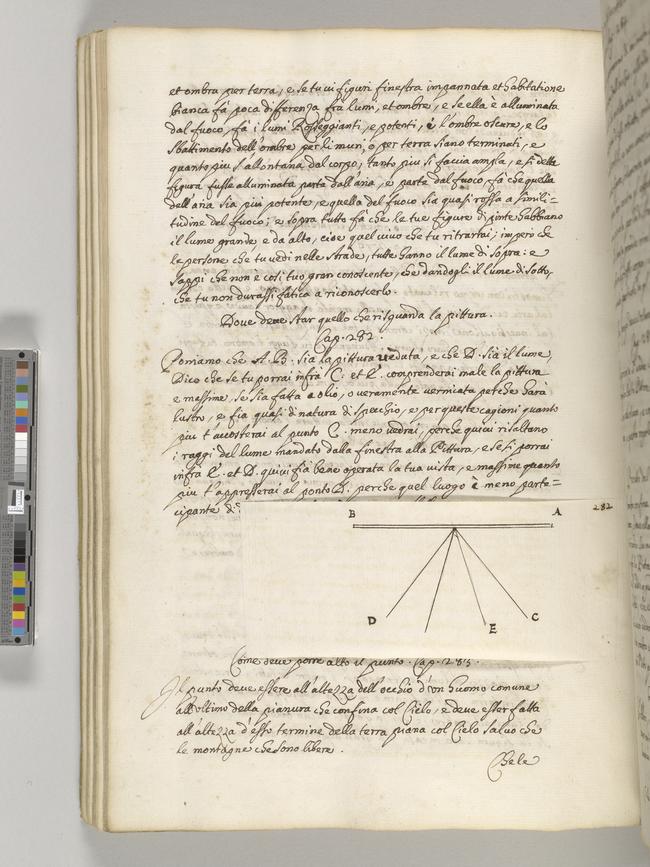 et ombra per terra, e se tu ci figuri finestra impannata et habitatione
bianca fà poca differenza fra lumi, et ombre, e se ella è alluminata
dal fuoco, fà i lumi Rosseggianti, e potenti, e l'ombre oscure, e lo
sbattimento dell'ombre per li muri, o per terra siano terminati, e
quanto piu s'allontana dal corpo, tanto piu si faccia ampla, e se detta
figura fusse alluminata parte dall'aria, e parte dal fuoco, fà che quella
dell'aria sia piu potente, e quella del fuoco sia quasi rossa a simili=
tudine del fuoco; e sopra tutto fà che le tue figure dipinte habbiano
il lume grande e da alto, cioe quel vivo che tu ritrartai; imperò che
le persone che tu vedi nelle strade, tutte hanno il lume di sopra: e
sappi che non è così tuo gran conoscente, che dandogli il lume di sotto,
che tu non durassi fatica a riconoscerlo.
Doue deve star quello che risguarda la pittura.
Cap. 282.
Poniamo che A. B. sia la pittura veduta, e che D. sia il lume,
Dico che se tu porrai infra C. et E. comprenderai male la pittura
e massime, se sia fatta a olio, o veramente vernicata perche harà
lustro, e fia quasi di natura di specchio, e per queste cagioni quanto
piu t'accosterai al punto C. meno vedrai, perche quivi risaltano
i raggi del lume mandato dalla finestra alla Pittura, e se si porrai
infra E. et D. quivi fia bene operata la tua vista, e massime quanto
piu t'appresserai al ponto D. perche quel luogo è meno parte=
cipante di
282
B A
D E C
Come deve porre alto il punto. Cap. 283.
Il punto deve essere all'altezza dell'occhio d'un huomo comune
all'ultimo della pianura che confina col Cielo, e deve esser fatta
all'altezza d'esso termine della terra piana col Cielo salvo che
le montagne che sono libere.
Che le